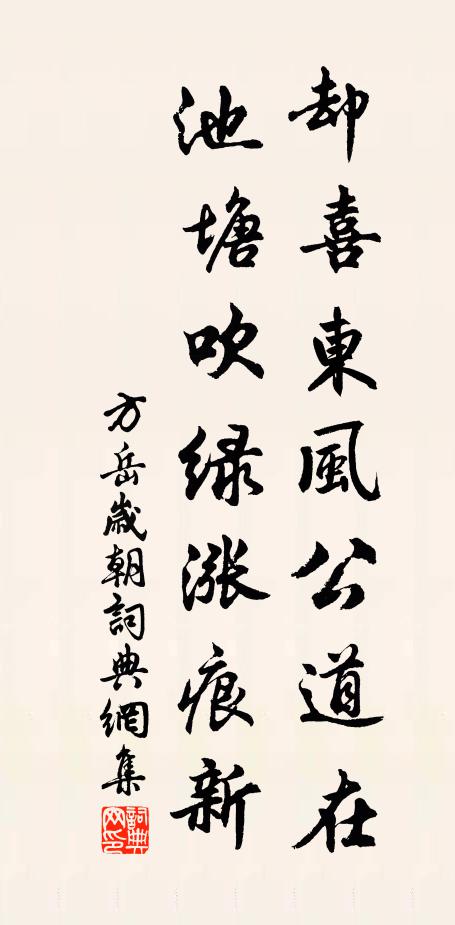 却喜東風公道在
池塘吹緑漲痕新
方岳歲朝詞典網集
詞典網印